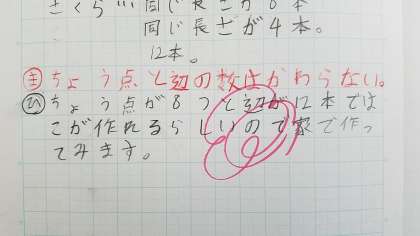 さくら…同じ長さが8本
同じ長さが4本。
12本。
㋖ちょう点と辺の数はかわらない。
㋪ちょう点が8つと辺が12本では
こが作れるらしいので家で作っ
てみます。